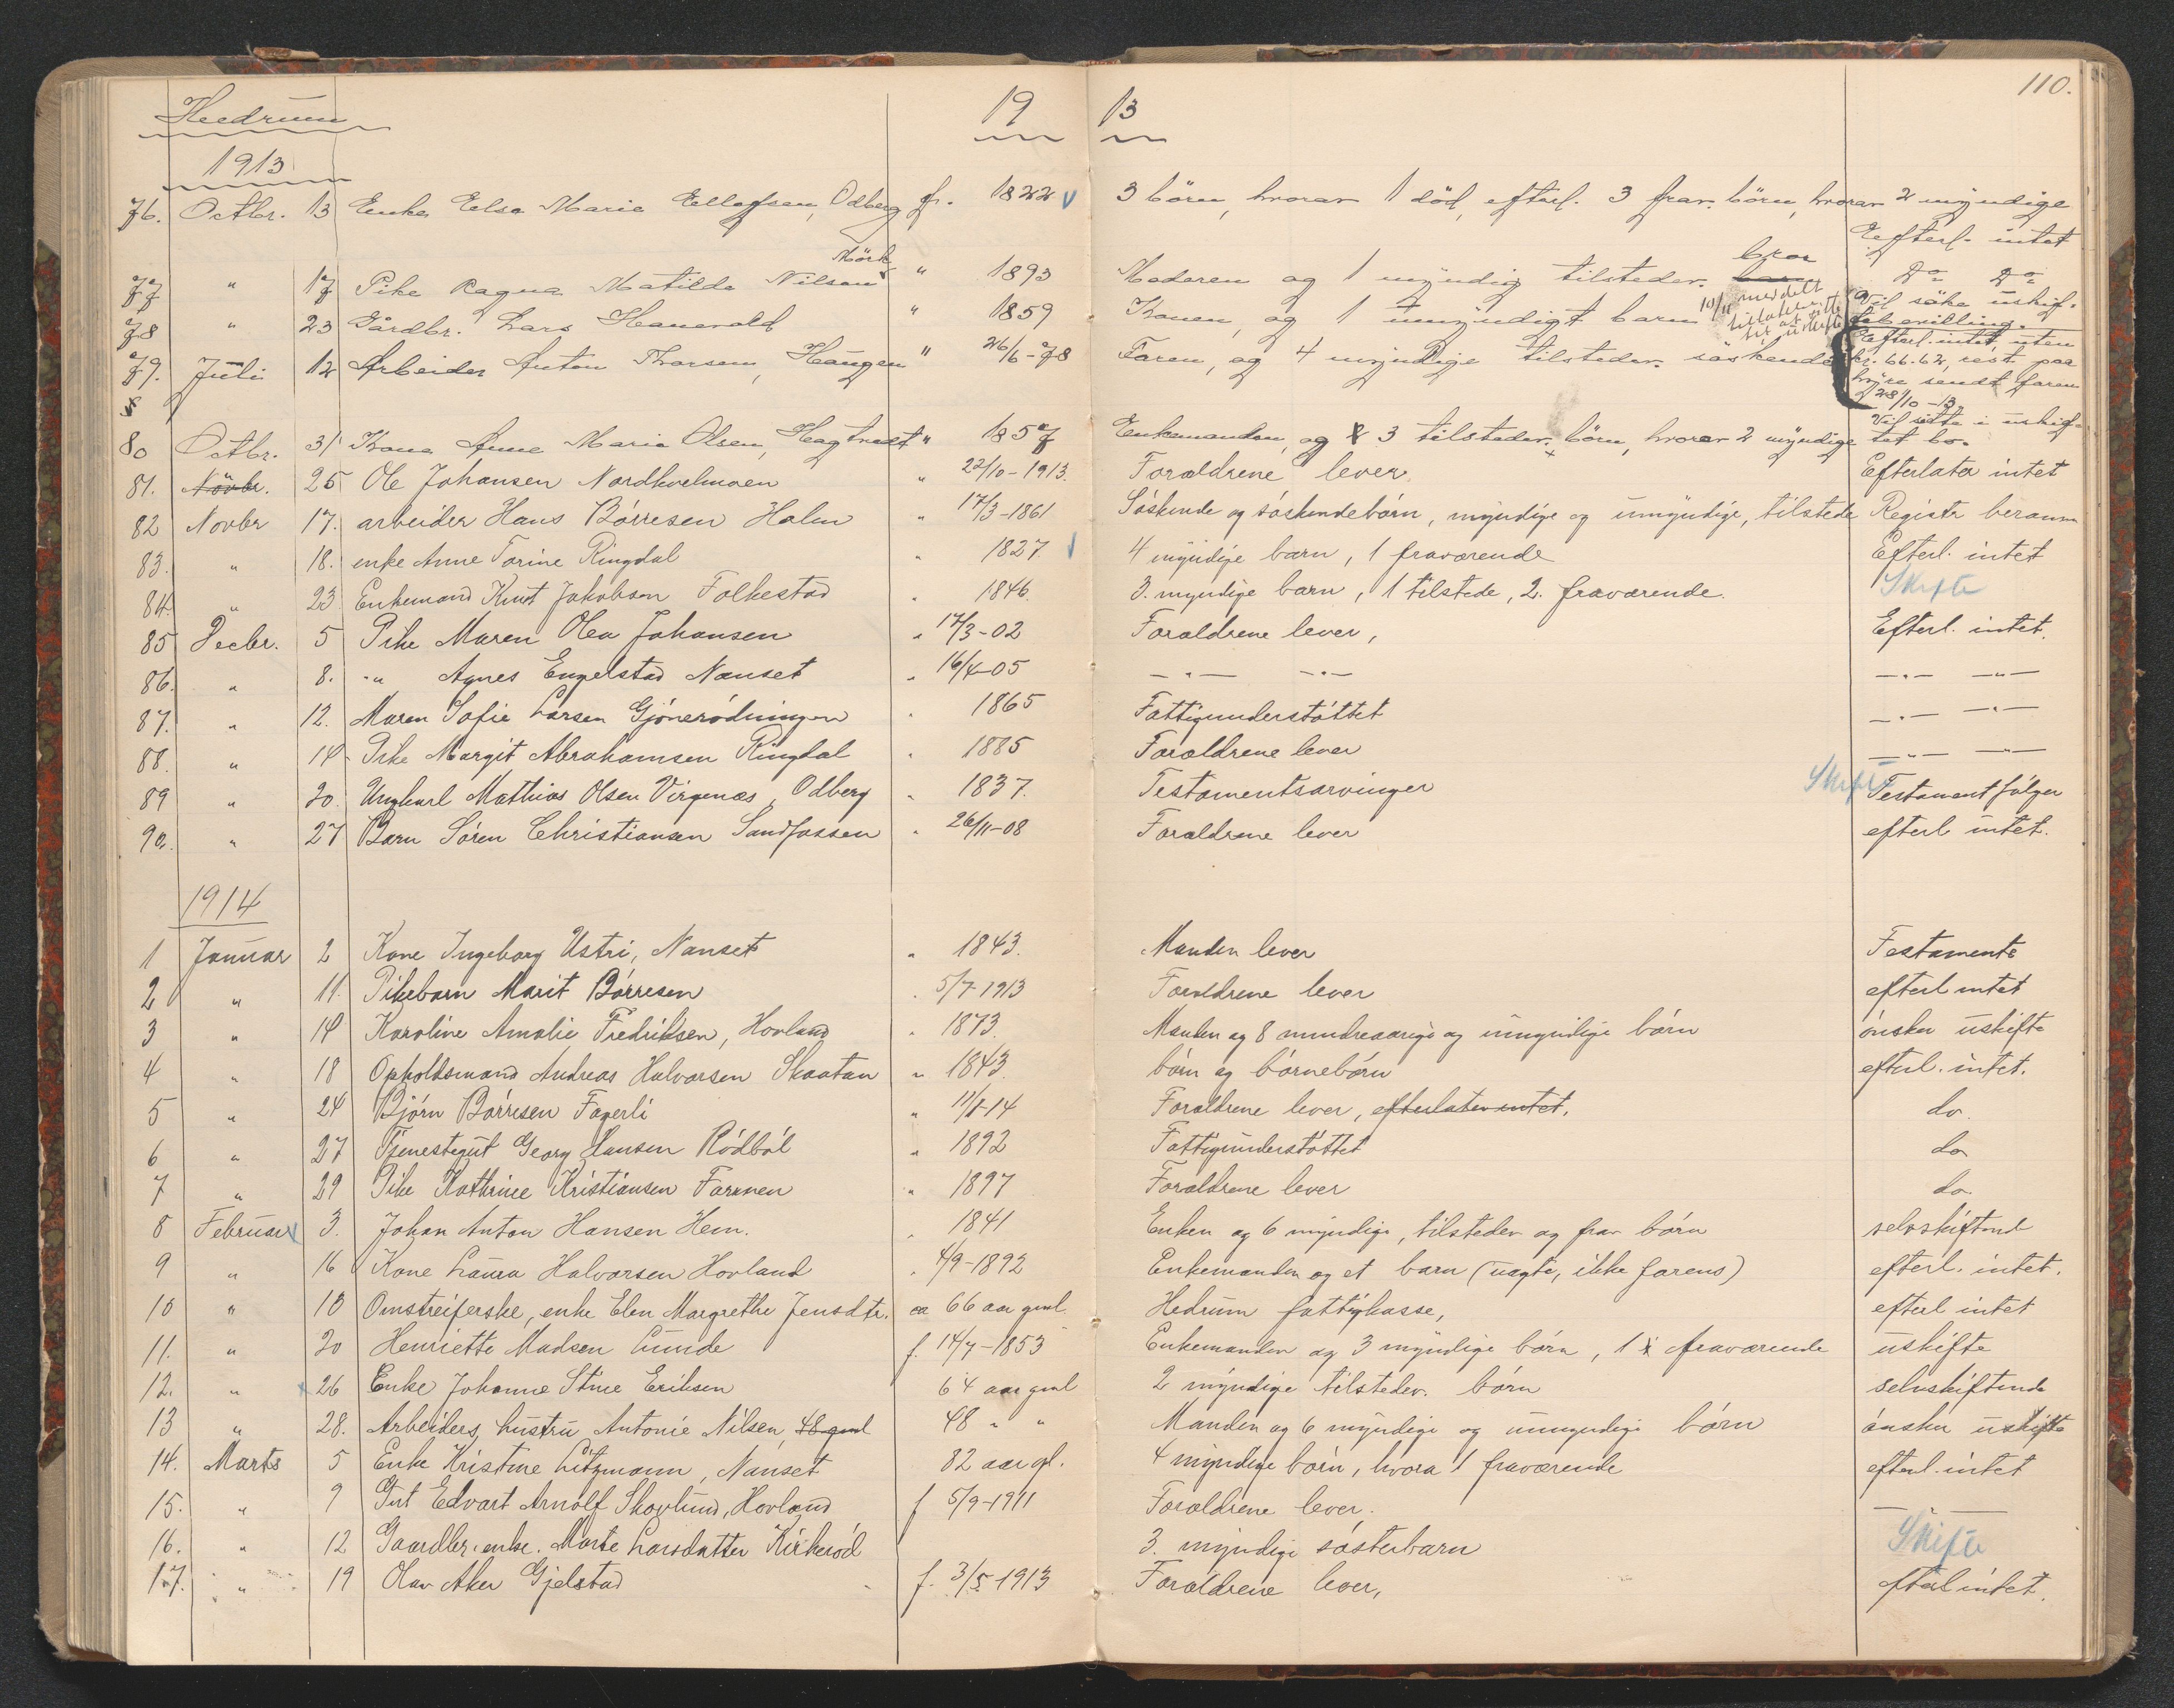 110.
Hedrum 19 13
1913
76. Octbr. 13 Enke Else Marie Ellefsen, Odberg f. 1822 3 börn, hvorav 1 död, efterl. 3 frav. börn, hvorav 2 myndige Efterl. intet
77 " 17 Pike Ragna Matilde Nilsen Mörk " 1893 Moderen og 1 myndig tilstedev. bror Do Do
78 " 23 Gårdbr. Lars Hanevold " 1859 Konen, og 1 umyndigt barn 10/11 meddelt Vil söke uskif-
tebevilling.
79. Juli 12 Arbeider Anton Thorsen, Haugen " 26/6-78 Faren, og 4 myndige tilstedev. söskende Efterl. intet, uten
kr. 66.62, rest paa
hyre sendt faren
28/10-13.
80 Octbr. 31 Kone Anne Marie Olsen, Hagtvedt " 1857 Enkemanden, og 3 tilstedev. börn, hvorav 2 myndige Vil sitte i uskif-
tet bo.
81. Novbr. 25 Ole Johansen Nordkvelmoen " 22/10-1913. Forældrene lever Efterlater intet
82 Novbr 17. arbeider Hans Börresen Holm " 17/3-1861 Söskende og söskendebörn, myndige og umyndige, tilstede Registr beramm
83. " 18. enke Anne Torine Ringdal " 1827 4 myndige barn, 1 fraværende Efterl. intet
84. " 23 Enkemand Knut Jakobsen Folkestad " 1846. 3. myndige barn, 1 tilstede, 2. fraværende. Skifte
85 Decbr. 5 Pike Maren Olea Johansen " 17/3-02 Forældrene lever, Efterl. intet.
86. " 8. -"- Agnes Engelstad Nanset " 16/4-05 —"— —"— —"— —"—
87. " 12. Maren Sofie Larsen Gjönerödningen " 1865 Fattigunderstöttet —"— —"—
88. " 14 Pike Margit Abrahamsen Ringdal " 1885 Forældrene lever —"— —"—
89 " 20 Ungkarl Mathias Olsen Virgenæs, Odberg " 1837. Testamentsarvinger Skifte Testament følger
90. " 27 Barn Sören Christiansen Sandfossen " 26/11-08 Forældrene lever efterl intet.
1914
1 Januar 2 Kone Ingeborg Ustri, Nanset " 1843. Manden lever Testamente
2 " 11. Pikebarn Marit Börresen " 5/7-1913 Forældrene lever efterl intet
3 " 14 Karoline Amalie Fredriksen, Hovland " 1873. Manden og 8 mindreaarige og umyndige börn önsker uskifte
4 " 18 Opholdsmand Andreas Halvorsen Skaatan " 1843. börn og börnebörn efterl. intet.
5 " 24 Björn Börresen Fagerli " 11/1-14 Forældrene lever, efterlater intet. do.
6 " 27 Tjenestegut Georg Hansen Rödböl " 1892 Fattigunderstöttet do
7 " 29 Pike Kathrine Kristiansen Farmen " 1897 Forældrene lever do.
8 Februar 3. Johan Anton Hansen Hem. " 1841 Enken og 6 myndige, tilstedev og frav börn selvskiftend
9 " 16 Kone Laura Halvorsen Hovland " 4/9-1892 Enkemanden og et barn (uægte, ikke farens) efterl. intet.
10 " 18 Omstreiferske, enke Elen Margrethe Jensdtr. ca 66 aar gml. Hedrum fattigkasse, efterl intet
11. " 20 Henriette Madsen Lunde f. 14/7-1853 Enkemanden og 3 myndige börn, 1 fraværende uskifte
12. " 26 Enke Johanne Stine Eriksen 64 aar gml 2 myndige tilstedev. börn selvskiftende
13 " 28. Arbeiders hustru Antonie Nilsen, 48 gml 48 " " Manden og 6 myndige og umyndige börn önsker uskifte
14. Marts 5 Enke Kristine Litzmann, Nanset 82 aar gl. 4 myndige börn, hvora 1 fraværende efterl. intet
15. " 9 Gut Edvart Arnolf Skovlund, Hovland f 5/9-1911 Forældrene lever. —
16. " 12 Gaardbr. enke. Marte Larsdatter Kirkeröd 3. myndige sösterbarn Skifte
17. " 19 Olav Aker Gjelstad f. 3/5 1913 Forældrene lever, efterl intet.